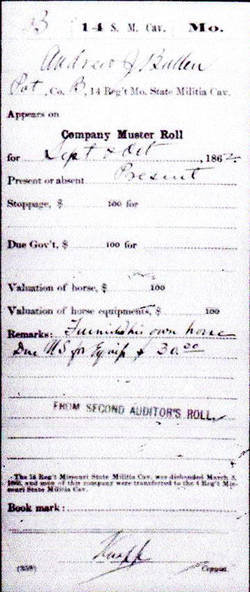 B | 14 S. M. Cav. | Mo.
Andrew J Bullen
Pvt, Co. B, 14 Reg't Mo. State Militia Cav.
Appears on
Company Muster Roll
for Sept & Oct, 1862.
Present or absent Present
Stoppage, $ 100 for
Due Gov't, $ 100 for
Valuation of horse, $ 100
Valuation of horse equipments, $ 100
Remarks: Furnidshis own horse
Due US for Equip $ 30.00
FROM SECOND AUDITOR'S ROLL.
The 14 Reg't Missouri State Militia Cav. was disbanded March 3,
1863, and men of this company were transferred to the 4 Reg't Mis-
souri State Militia Cav.
Book mark:
Knapp
(359) Copyist.